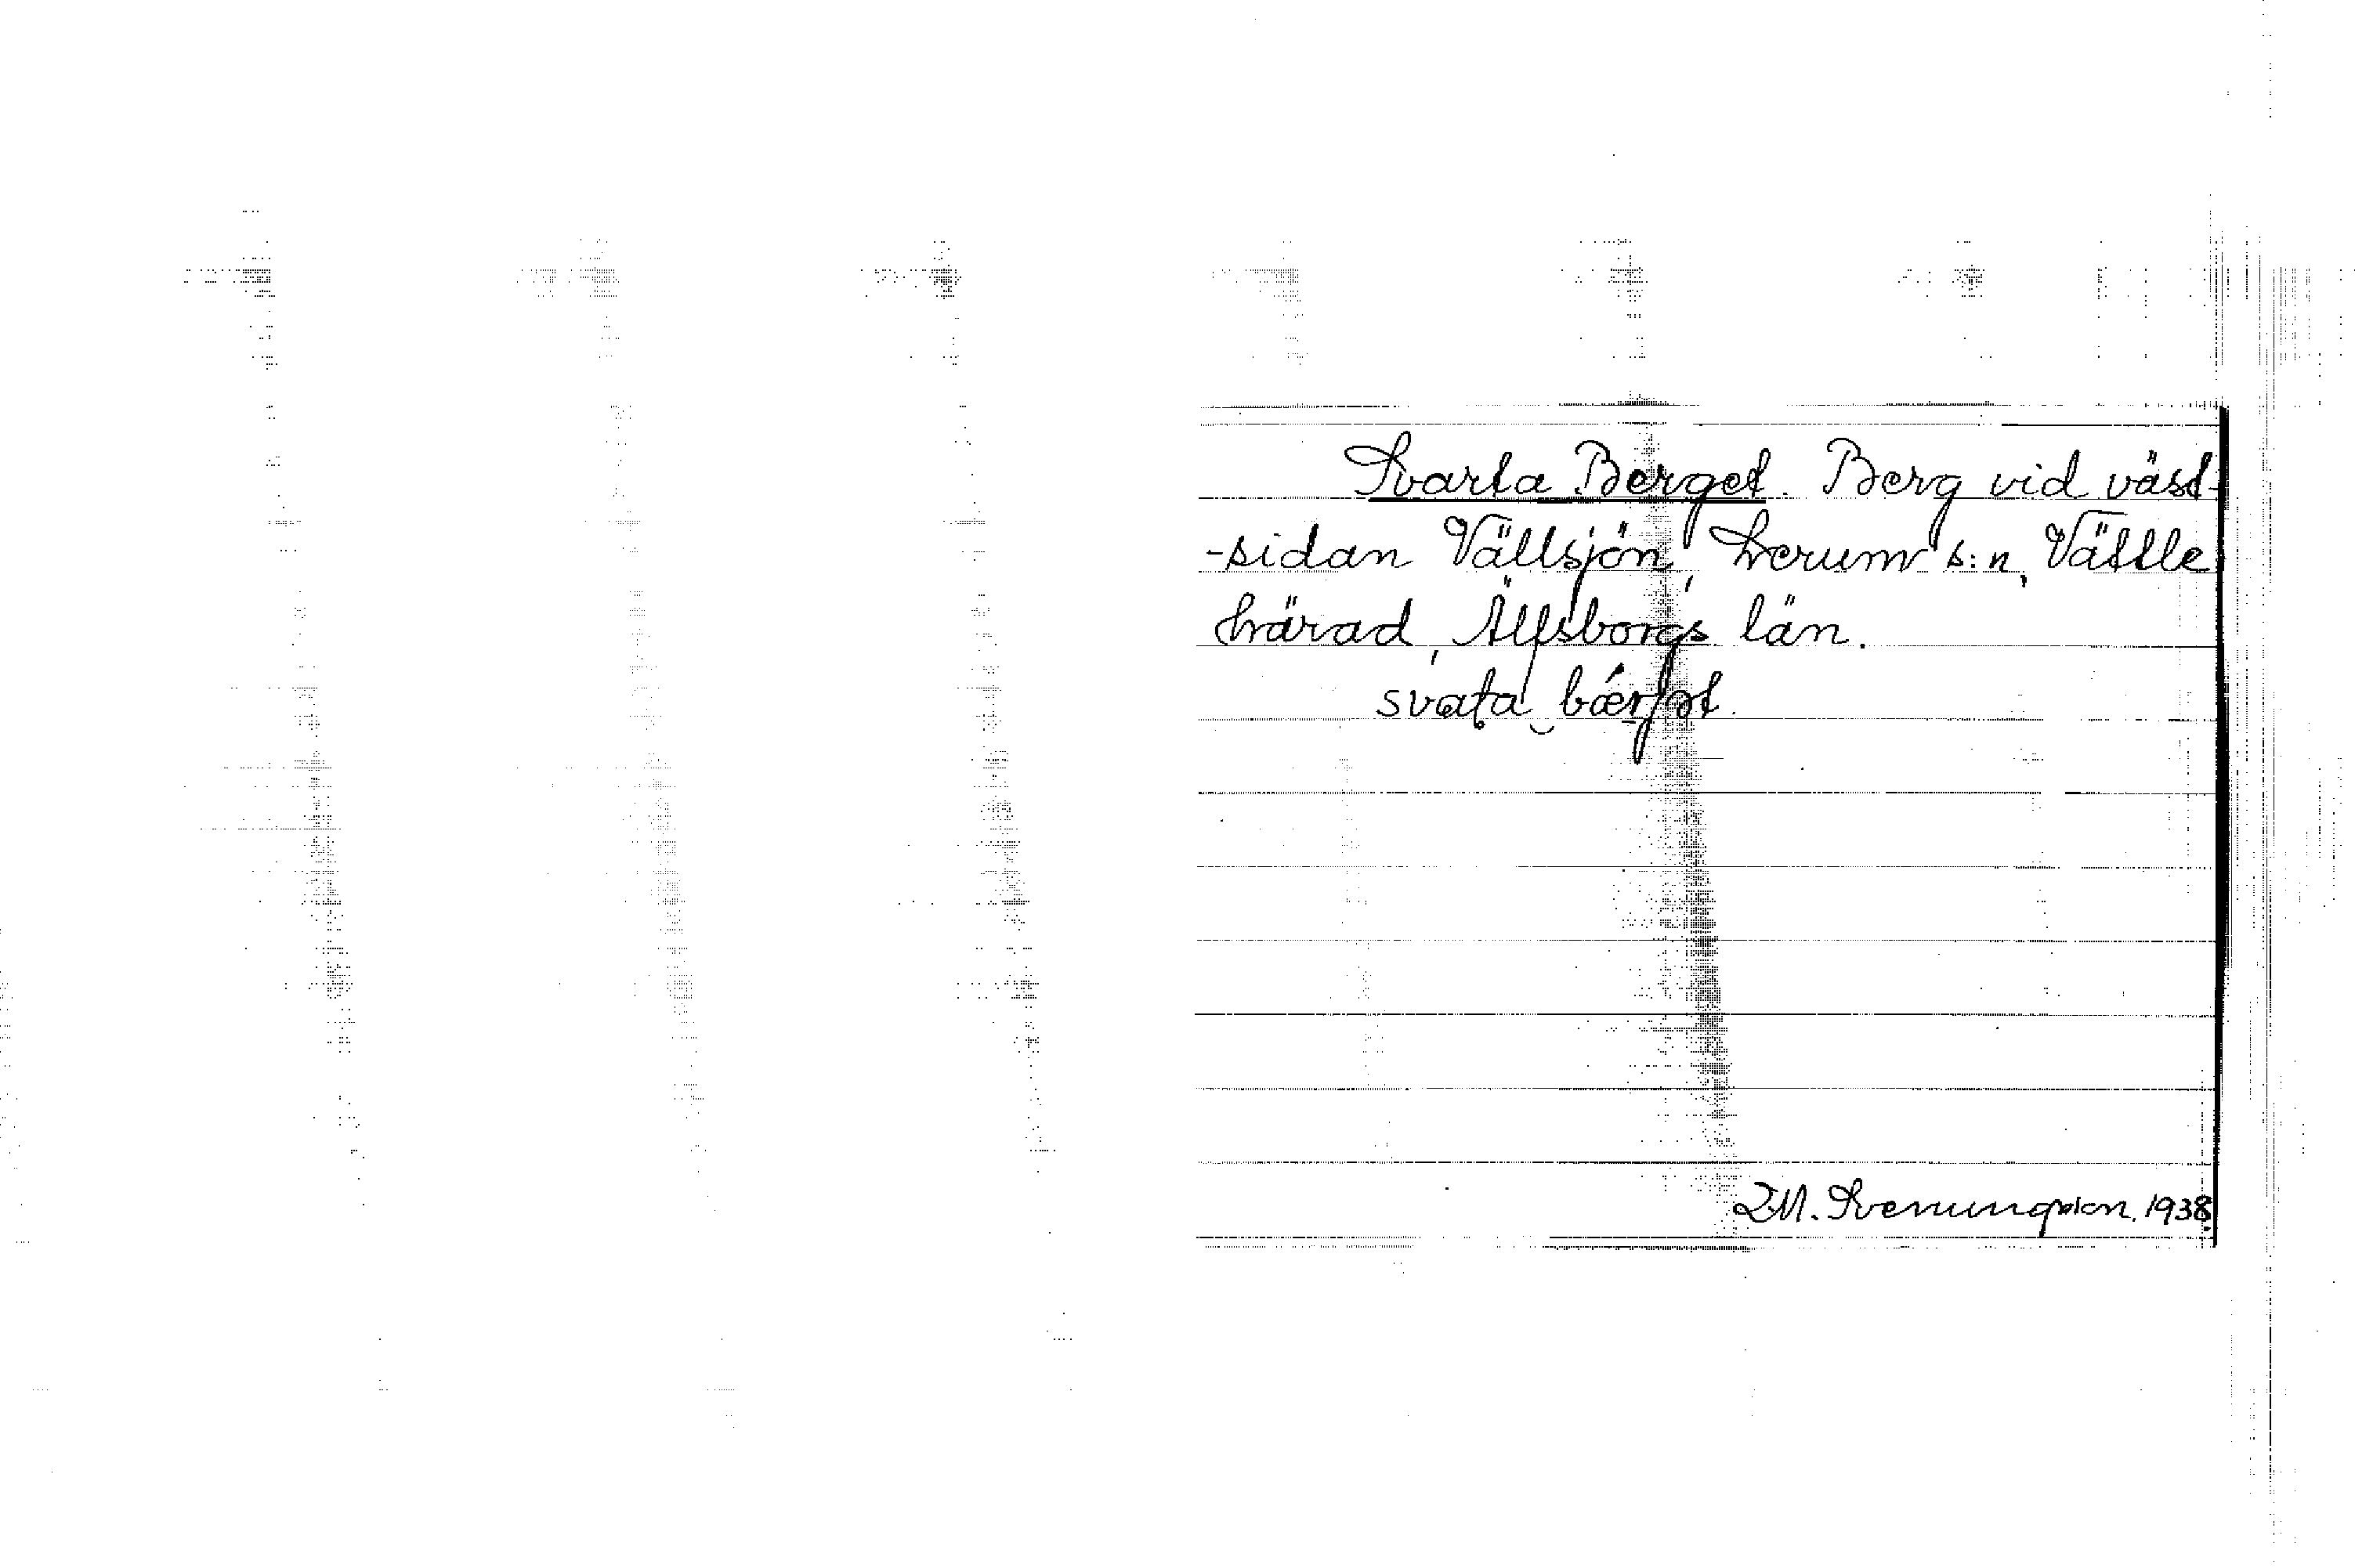 Svarta Berget. Berg vid väst-
-sidan Vällsjön, Lerum s:n, Vättle
härad, Älfsborgs län.
svata bærjət.
M. Svenungsson. 1938